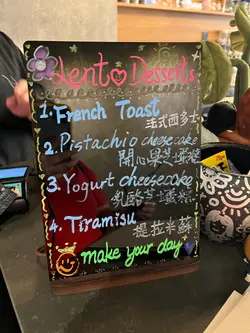 Lento Desserts
1. French Toast
法式西多士
2. Pistachio cheesecake
開心果芝士蛋糕
3. Yogurt cheesecake
乳酪芝士蛋糕
4. Tiramisu
提拉米蘇
make your day